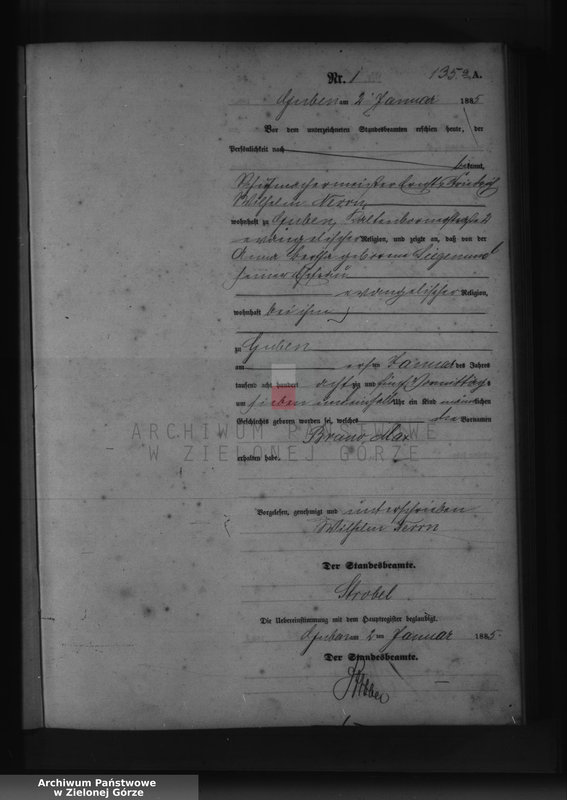 Nr. 1
135 a A.
Guben am 2 Januar 1885
Vor dem unterzeichneten Standesbeamten erschien heute, der
Persönlichkeit nach
kannt,
Schuhmachermeister Ernst Friedrich
Wilhelm
wohnhaft zu Guben,
evangelischer Religion, und zeigte an, daß von der
Anna Bertha geborene Siegemund
seiner Ehefrau
evangelischer Religion,
wohnhaft bei ihm
zu Guben
am ersten Januar des Jahres
tausend acht hundert achtzig und fünf Vormittags
um sieben einhalb Uhr ein Kind männlichen
Geschlechts geboren worden sei, welches die Vornamen
Bruno Max
erhalten habe.
ARCHIWUM PAŃSTWOWE
W ZIELONEJ GÓRZE
Vorgelesen, genehmigt und unterschrieben
Wilhelm
Der Standesbeamte.
Strobel
Die Uebereinstimmung mit dem Hauptregister beglaubigt.
Guben am 2 ten Januar 1885.
Der Standesbeamte.
Archiwum Państwowe
w Zielonej Górze